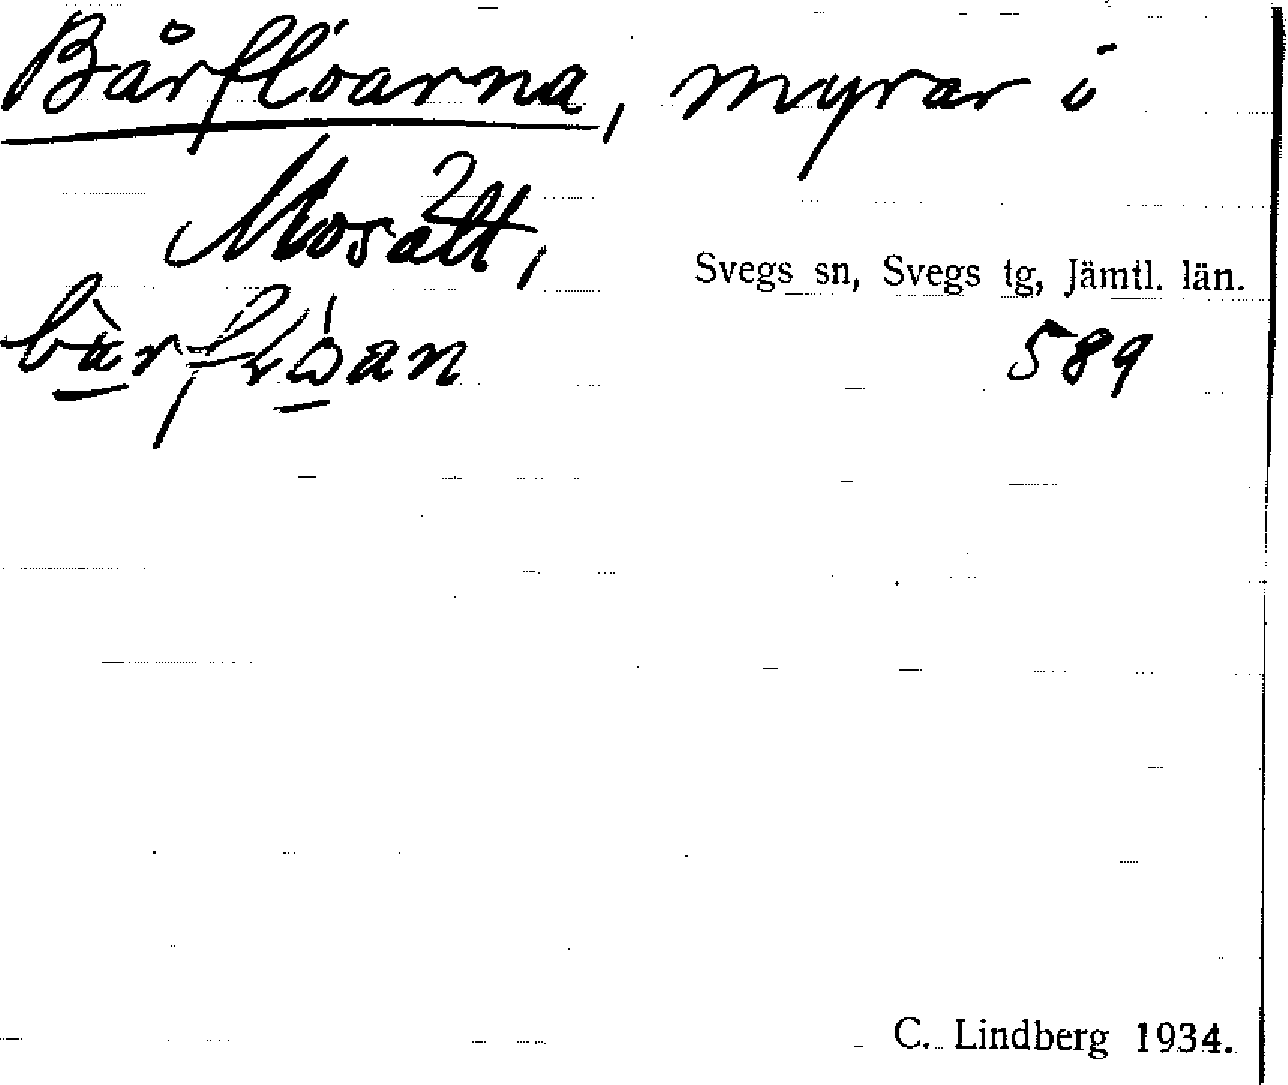 Bårflöarna, myrar i
Mosätt,
Svegs sn, Svegs tg, Jämtl. län.
589
C. Lindberg 1934.